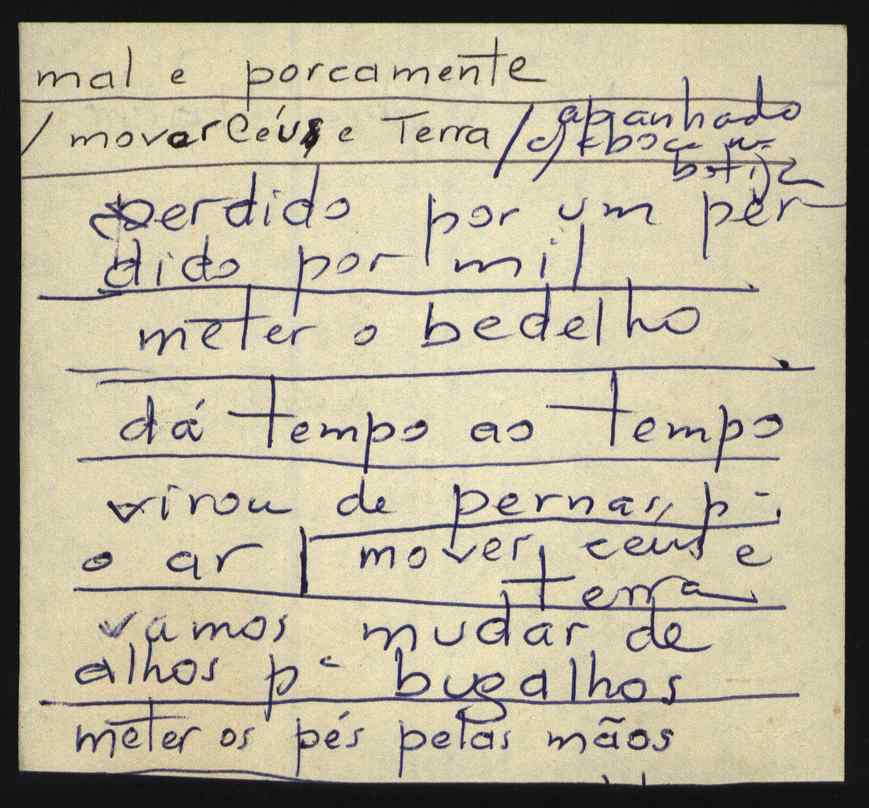 mal e porcamente
/ mover Céus e Terra / apanhado
c/ a boca na
botija
perdido por um per-
dido por mil
meter o bedelho
dá tempo ao tempo
virou de pernas, pª
o ar | mover ceus e
terra
vamos mudar de
alhos pª bugalhos
meter os pés pelas mãos